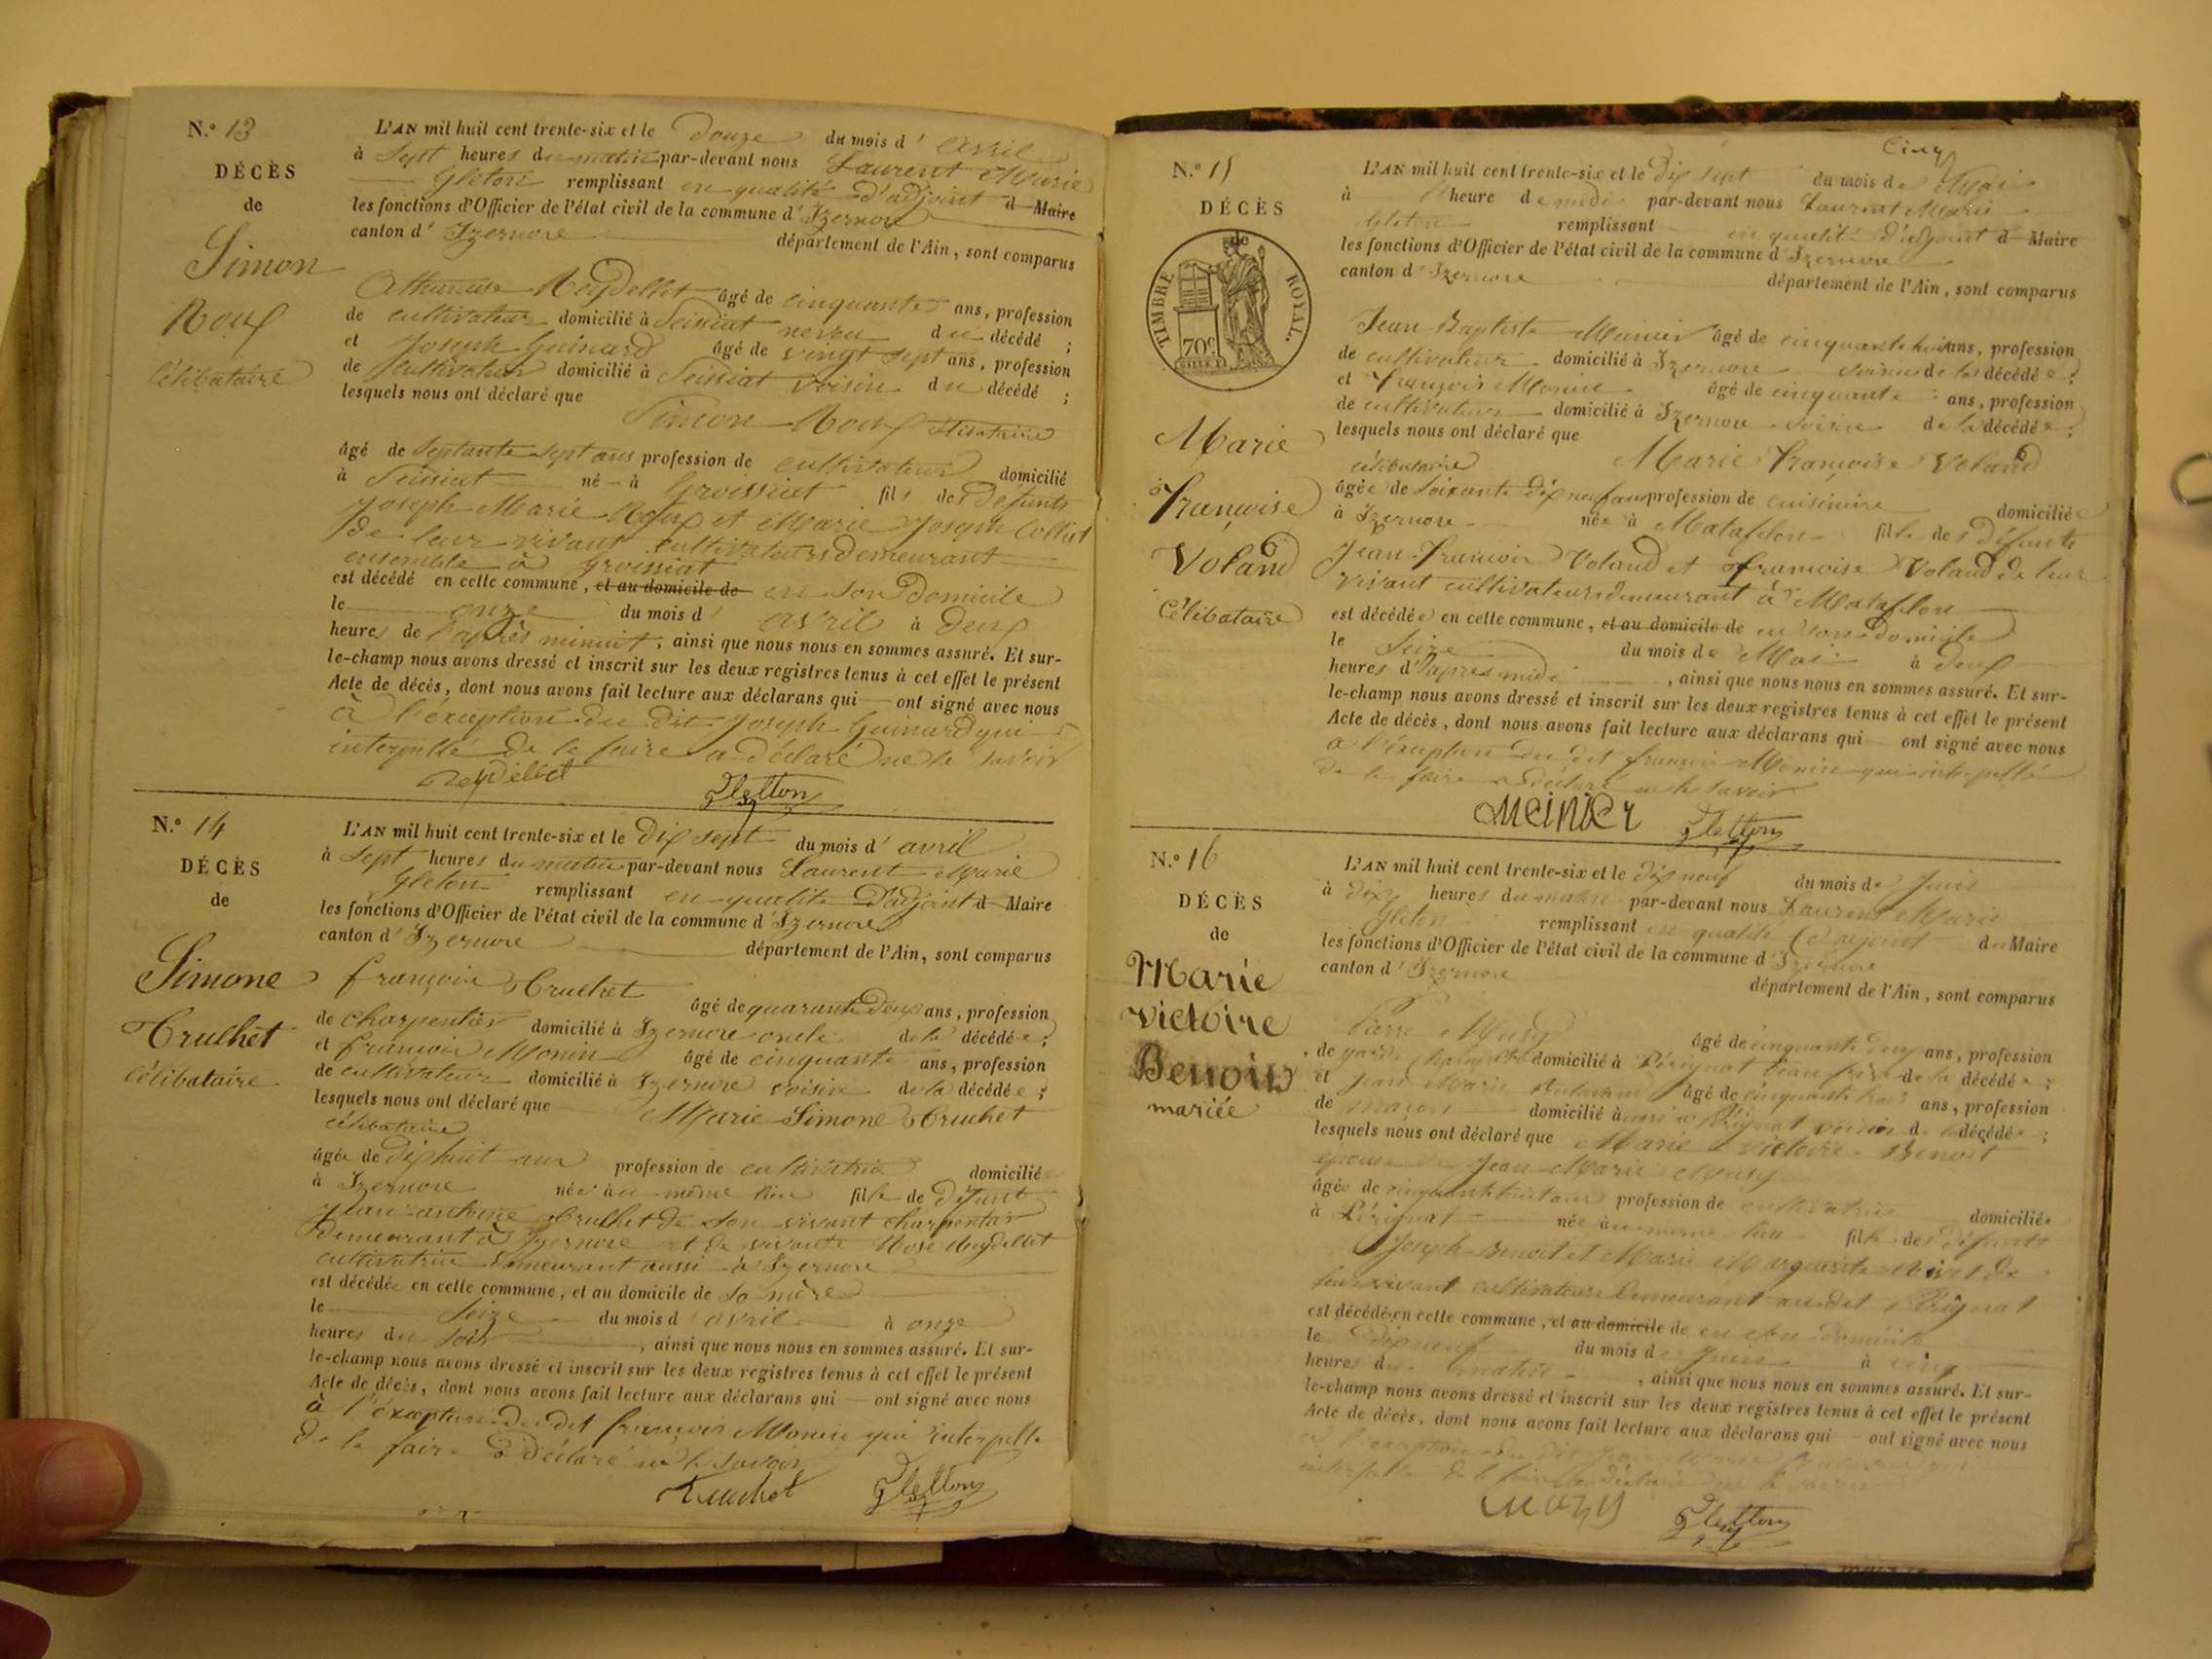 N.° 13
DÉCÈS
de
Simon
Roux
célibataire
L'AN mil huit cent trente-six et le douze du mois d'avril
à sept heures du matin par-devant nous Laurent Marie
Gleton remplissant en qualité d'adjoint d Maire
les fonctions d'Officier de l'état civil de la commune d'Izernore
canton d'Izernore département de l'Ain, sont comparus
Reydellet âgé de cinquante ans, profession
de cultivateur domicilié à Seissiat neveu du décédé ;
et Joseph Guinard âgé de vingt sept ans, profession
de cultivateur domicilié à Seissiat voisin du décédé ;
lesquels nous ont déclaré que
Simon Roux célibataire
âgé de septante sept ans profession de cultivateur domicilié
à Seissiat né à Groissiat fils des défunts
Joseph Marie Roux et Marie Joseph Collet
de leur vivant cultivateurs demeurant
ensemble à Groissiat
est décédé en cette commune, et au domicile de en son domicile
le onze du mois d'avril à deux
heures de l'après minuit, ainsi que nous nous en sommes assuré. Et sur-
le-champ nous avons dressé et inscrit sur les deux registres tenus à cet effet le présent
Acte de décès, dont nous avons fait lecture aux déclarans qui ont signé avec nous
à l'éxception du dit Joseph Guinard qui
interpellé de le faire a déclaré ne le savoir
Reydellet Gletton
N.° 14
DÉCÈS
de
Simone
Cruchet
célibataire
L'AN mil huit cent trente-six et le dix sept du mois d'avril
à sept heures du matin par-devant nous Laurent Marie
Gleton remplissant en qualité d'adjoint d Maire
les fonctions d'Officier de l'état civil de la commune d'Izernore
canton d'Izernore département de l'Ain, sont comparus
françois Cruchet âgé de quarante deux ans, profession
de charpentier domicilié à Izernore oncle de la décédée ;
et françois Monin âgé de cinquante ans, profession
de cultivateur domicilié à Izernore voisin de la décédée ;
lesquels nous ont déclaré que Marie Simone Cruchet
célibataire
âgée de dix huit ans profession de cultivatrice domiciliée
à Izernore née au même lieu fille de défunt
antoine Cruchet de son vivant charpentier
demeurant à Izernore et de vivante Rose Reydellet
cultivatrice demeurant aussi à Izernore
est décédée en cette commune, et au domicile de sa mère
le seize du mois d'avril à onze
heures du soir, ainsi que nous nous en sommes assuré. Et sur-
le-champ nous avons dressé et inscrit sur les deux registres tenus à cet effet le présent
Acte de décès, dont nous avons fait lecture aux déclarans qui ont signé avec nous
à l'éxception du dit françois Monin qui interpellé
de le faire a déclaré ne le savoir
Cruchet Gletton
Cinq
N.° 15
DÉCÈS
de
TIMBRE ROYAL.
70c
Marie
françoise
Voland
Célibataire
L'AN mil huit cent trente-six et le dix sept du mois de Mai
à l'heure de midi par-devant nous Laurent Marie
Gleton remplissant en qualité d'adjoint d Maire
les fonctions d'Officier de l'état civil de la commune d'Izernore
canton d'Izernore département de l'Ain, sont comparus
Jean Baptiste Meinier âgé de cinquante huit ans, profession
de cultivateur domicilié à Izernore voisin de la décédée ;
et françois Monin âgé de cinquante ans, profession
de cultivateur domicilié à Izernore voisin de la décédée ;
lesquels nous ont déclaré que Marie françoise Voland
célibataire
âgée de soixante dix neuf ans profession de cuisinière domiciliée
à Izernore née à Matafelon fille des défunts
Jean françois Voland et françoise Voland de leur
vivant cultivateurs demeurant à Matafelon
est décédée en cette commune, et au domicile de en son domicile
le seize du mois de Mai à deux
heures d'l'après midi, ainsi que nous nous en sommes assuré. Et sur-
le-champ nous avons dressé et inscrit sur les deux registres tenus à cet effet le présent
Acte de décès, dont nous avons fait lecture aux déclarans qui ont signé avec nous
à l'éxception du dit françois Monin qui interpellé
de le faire a déclaré ne le savoir
Meinier Gletton
N.° 16
DÉCÈS
de
Marie
victoire
Benoit
mariée
L'AN mil huit cent trente-six et le dix neuf du mois de Juin
à dix heures du matin par-devant nous Laurent Marie
Gleton remplissant en qualité d'adjoint du Maire
les fonctions d'Officier de l'état civil de la commune d'Izernore
canton d'Izernore département de l'Ain, sont comparus
Pierre Musy âgé de cinquante deux ans, profession
de garde champêtre domicilié à Pérignat beau frère de la décédée ;
et Jean Marie âgé de cinquante trois ans, profession
de maçon domicilié aussi à Pérignat voisin de la décédée ;
lesquels nous ont déclaré que Marie Victoire Benoit
épouse de Jean Marie Musy
âgée de cinquante huit ans profession de cultivatrice domiciliée
à Pérignat née au même lieu fille des défunts
Joseph Benoit et Marie Marguerite de
leur vivant cultivateurs demeurant au dit Pérignat
est décédée en cette commune, et au domicile de en son domicile
le dix neuf du mois de Juin à cinq
heures du matin, ainsi que nous nous en sommes assuré. Et sur-
le-champ nous avons dressé et inscrit sur les deux registres tenus à cet effet le présent
Acte de décès, dont nous avons fait lecture aux déclarans qui ont signé avec nous
à l'exception du dit Jean Marie qui
interpellé de le faire a déclaré ne le savoir
Gletton